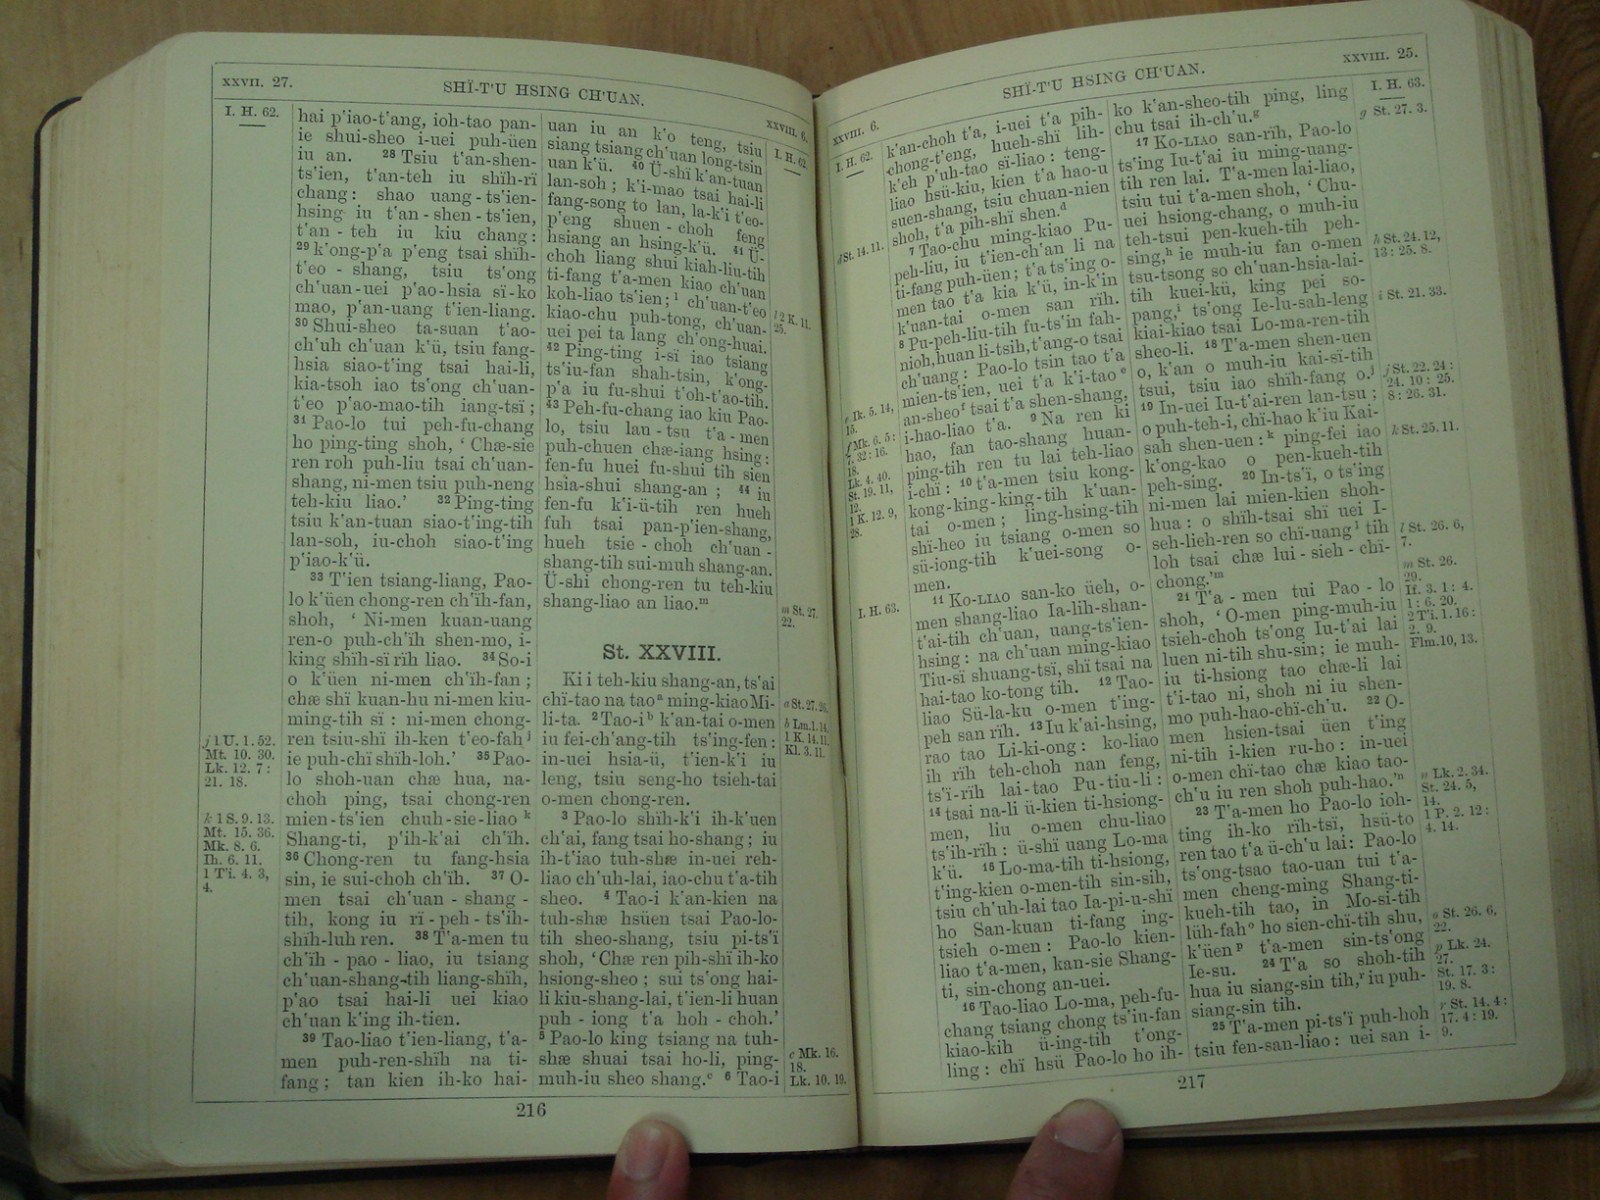 XXVII. 27.
SHÏ-T'U HSING CH'UAN.
XXVIII. 6.
I. H. 62.
hai p'iao-t'ang, ioh-tao pan-
ie shui-sheo i-uei puh-üen
iu an. 28 Tsiu t'an-shen-
ts'ien, t'an-teh iu shïh-rï
chang: shao uang-ts'ien-
hsing iu t'an-shen-ts'ien,
t'an-teh iu kiu chang:
29 k'ong-p'a p'eng tsai shïh-
t'eo-shang, tsiu ts'ong
ch'uan-uei p'ao-hsia sï-ko
mao, p'an-uang t'ien-liang.
30 Shui-sheo ta-suan t'ao-
ch'uh ch'uan k'ü, tsiu fang-
hsia siao-t'ing tsai hai-li,
kia-tsoh iao ts'ong ch'uan-
t'eo p'ao-mao-tih iang-tsï;
31 Pao-lo tui peh-fu-chang
ho ping-ting shoh, ' Chæ-sie
ren roh puh-liu tsai ch'uan-
shang, ni-men tsiu puh-neng
teh-kiu liao.' 32 Ping-ting
tsiu k'an-tuan siao-t'ing-tih
lan-soh, iu-choh siao-t'ing
p'iao-k'ü.
33 T'ien tsiang-liang, Pao-
lo k'üen chong-ren ch'ïh-fan,
shoh, ' Ni-men kuan-uang
ren-o puh-ch'ïh shen-mo, i-
king shïh-sï rïh liao. 34 So-i
o k'üen ni-men ch'ïh-fan;
chæ shï kuan-hu ni-men kiu-
ming-tih sï: ni-men chong-
ren tsiu-shï ih-ken t'eo-fah j
ie puh-chï shïh-loh.' 35 Pao-
lo shoh-uan chæ hua, na-
choh ping, tsai chong-ren
mien-ts'ien chuh-sie-liao k
Shang-ti, p'ih-k'ai ch'ïh.
36 Chong-ren tu fang-hsia
sin, ie sui-choh ch'ïh. 37 O-
men tsai ch'uan-shang-
tih, kong iu rï-peh-ts'ih-
shïh-luh ren. 38 T'a-men tu
ch'ïh-pao-liao, iu tsiang
ch'uan-shang-tih liang-shïh,
p'ao tsai hai-li uei kiao
ch'uan k'ing ih-tien.
39 Tao-liao t'ien-liang, t'a-
men puh-ren-shïh na ti-
fang; tan kien ih-ko hai-
j 1 U. 1. 52.
Mt. 10. 30.
Lk. 12. 7:
21. 18.
k 1 S. 9. 13.
Mt. 15. 36.
Mk. 8. 6.
Ih. 6. 11.
1 T'i. 4. 3,
4.
uan iu an k'o teng, tsiu
siang tsiang ch'uan long-tsin
uan k'ü. 40 Ü-shï k'an-tuan
lan-soh; k'i-mao tsai hai-li
fang-song to lan, la-k'i t'eo-
p'eng shuen-choh feng
hsiang an hsing-k'ü. 41 Ü-
choh liang shui kiah-liu-tih
ti-fang t'a-men kiao ch'uan
koh-liao ts'ien; l ch'uan-t'eo
kiao-chu puh-tong, ch'uan-
uei pei ta lang ch'ong-huai.
42 Ping-ting i-sï iao tsiang
ts'iu-fan shah-tsin, k'ong-
p'a iu fu-shui t'oh-t'ao-tih.
43 Peh-fu-chang iao kiu Pao-
lo, tsiu lan-tsu t'a-men
puh-chuen chæ-iang hsing:
fen-fu huei fu-shui tih sien
hsia-shui shang-an; 44 iu
fen-fu k'i-ü-tih ren hueh
fuh tsai pan-p'ien-shang,
hueh tsie-choh ch'uan-
shang-tih sui-muh shang-an.
Ü-shi chong-ren tu teh-kiu
shang-liao an liao. m
St. XXVIII.
Ki i teh-kiu shang-an, ts'ai
chï-tao na tao a ming-kiao Mi-
li-ta. 2 Tao-i b k'an-tai o-men
iu fei-ch'ang-tih ts'ing-fen:
in-uei hsia-ü, t'ien-k'i iu
leng, tsiu seng-ho tsieh-tai
o-men chong-ren.
3 Pao-lo shïh-k'i ih-k'uen
ch'ai, fang tsai ho-shang; iu
ih-t'iao tuh-shæ in-uei reh-
liao ch'uh-lai, iao-chu t'a-tih
sheo. 4 Tao-i k'an-kien na
tuh-shæ hsüen tsai Pao-lo-
tih sheo-shang, tsiu pi-ts'ï
shoh, ' Chæ ren pih-shï ih-ko
hsiong-sheo; sui ts'ong hai-
li kiu-shang-lai, t'ien-li huan
puh-iong t'a hoh-choh.'
5 Pao-lo king tsiang na tuh-
shæ shuai tsai ho-li, ping-
muh-iu sheo shang. c 6 Tao-i
I. H. 62.
l 2 K. 11.
25.
m St. 27.
22.
a St. 27. 26.
b Lm. 1. 14.
1 K. 14. 11.
Kl. 3. 11.
c Mk. 16.
18.
Lk. 10. 19.
216
XXVIII. 6.
SHÏ-T'U HSING CH'UAN.
XXVIII. 25.
I. H. 62.
d St. 14. 11.
e Ik. 5. 14,
15.
f Mk. 6. 5:
7. 32: 16.
18.
Lk. 4. 40.
St. 19. 11,
12.
1 K. 12. 9,
28.
I. H. 63.
k'an-choh t'a, i-uei t'a pih-
chong-t'eng, hueh-shï lih-
k'eh p'uh-tao sï-liao: teng-
liao hsü-kiu, kien t'a hao-u
suen-shang, tsiu chuan-nien
shoh, t'a pih-shï shen. d
7 Tao-chu ming-kiao Pu-
peh-liu, iu t'ien-ch'an li na
ti-fang puh-üen; t'a ts'ing o-
men tao t'a kia k'ü, in-k'in
k'uan-tai o-men san rïh.
8 Pu-peh-liu-tih fu-ts'in fah-
nioh, huan li-tsih, t'ang-o tsai
ch'uang: Pao-lo tsin tao t'a
mien-ts'ien, uei t'a k'i-tao e
an-sheo f tsai t'a shen-shang,
i-hao-liao t'a. 9 Na ren ki
hao, fan tao-shang huan-
ping-tih ren tu lai teh-liao
i-chï: 10 t'a-men tsiu kong-
kong-king-king-tih k'uan-
tai o-men; ling-hsing-tih
shï-heo iu tsiang o-men so
sü-iong-tih k'uei-song o-
men.
11 KO-LIAO san-ko üeh, o-
men shang-liao Ia-lih-shan-
t'ai-tih ch'uan, uang-ts'ien-
hsing: na ch'uan ming-kiao
Tiu-sï shuang-tsï, shï tsai na
hai-tao ko-tong tih. 12 Tao-
liao Sü-la-ku o-men t'ing-
peh san rïh. 13 Iu k'ai-hsing,
rao tao Li-ki-ong: ko-liao
ih rïh teh-choh nan feng,
ts'ï-rïh lai-tao Pu-tiu-li:
14 tsai na-li ü-kien ti-hsiong-
men, liu o-men chu-liao
ts'ih-rïh: ü-shï uang Lo-ma
k'ü. 15 Lo-ma-tih ti-hsiong,
t'ing-kien o-men-tih sin-sih,
tsiu ch'uh-lai tao Ia-pi-u-shï
ho San-kuan ti-fang ing-
tsieh o-men: Pao-lo kien-
liao t'a-men, kan-sie Shang-
ti, sin-chong an-uei.
16 Tao-liao Lo-ma, peh-fu-
chang tsiang chong ts'iu-fan
kiao-kih ü-ing-tih t'ong-
ling: chï hsü Pao-lo ho ih-
ko k'an-sheo-tih ping, ling
chu tsai ih-ch'u. g
17 KO-LIAO san-rïh, Pao-lo
ts'ing Iu-t'ai iu ming-uang-
tih ren lai. T'a-men lai-liao,
tsiu tui t'a-men shoh, ' Chu-
uei hsiong-chang, o muh-iu
teh-tsui pen-kueh-tih peh-
sing, h ie muh-iu fan o-men
tsu-tsong so ch'uan-hsia-lai-
tih kuei-kü, king pei so-
pang, i ts'ong Ie-lu-sah-leng
kiai-kiao tsai Lo-ma-ren-tih
sheo-li. 18 T'a-men shen-uen
o, k'an o muh-iu kai-sï-tih
tsui, tsiu iao shïh-fang o. j
19 In-uei Iu-t'ai-ren lan-tsu;
o puh-teh-i, chï-hao k'iu Kai-
sah shen-uen: k ping-fei iao
k'ong-kao o pen-kueh-tih
peh-sing. 20 In-ts'ï, o ts'ing
ni-men lai mien-kien shoh-
hua: o shïh-tsai shï uei I-
seh-lieh-ren so chï-uang l tih
loh tsai chæ lui-sieh-chï-
chong.' m
21 T'a-men tui Pao-lo
shoh, ' O-men ping-muh-iu
tsieh-choh ts'ong Iu-t'ai lai
luen ni-tih shu-sin; ie muh-
iu ti-hsiong tao chæ-li lai
t'i-tao ni, shoh ni iu shen-
mo puh-hao-chï-ch'u. 22 O-
men hsien-tsai üen t'ing
ni-tih i-kien ru-ho: in-uei
o-men chï-tao chæ kiao tao-
ch'u iu ren shoh puh-hao.' n
23 T'a-men ho Pao-lo ioh-
ting ih-ko rïh-tsï, hsü-to
ren tao t'a ü-ch'u lai: Pao-lo
ts'ong-tsao tao-uan tui t'a-
men cheng-ming Shang-ti-
kueh-tih tao, in Mo-si-tih
lüh-fah o ho sien-chï-tih shu,
k'üen p t'a-men sin-ts'ong
Ie-su. 24 T'a so shoh-tih
hua iu siang-sin tih, r iu puh-
siang-sin tih.
25 T'a-men pi-ts'ï puh-hoh
tsiu fen-san-liao: uei san i-
I. H. 63.
g St. 27. 3.
h St. 24. 12,
13: 25. 8.
i St. 21. 33.
j St. 22. 24:
24. 10: 25.
8: 26. 31.
k St. 25. 11.
l St. 26. 6,
7.
m St. 26.
29.
If. 3. 1: 4.
1: 6. 20.
2 T'i. 1. 16:
2. 9.
Flm. 10, 13.
n Lk. 2. 34.
St. 24. 5,
14.
1 P. 2. 12:
4. 14.
o St. 26. 6,
22.
p Lk. 24.
27.
St. 17. 3:
19. 8.
r St. 14. 4:
17. 4: 19.
9.
217